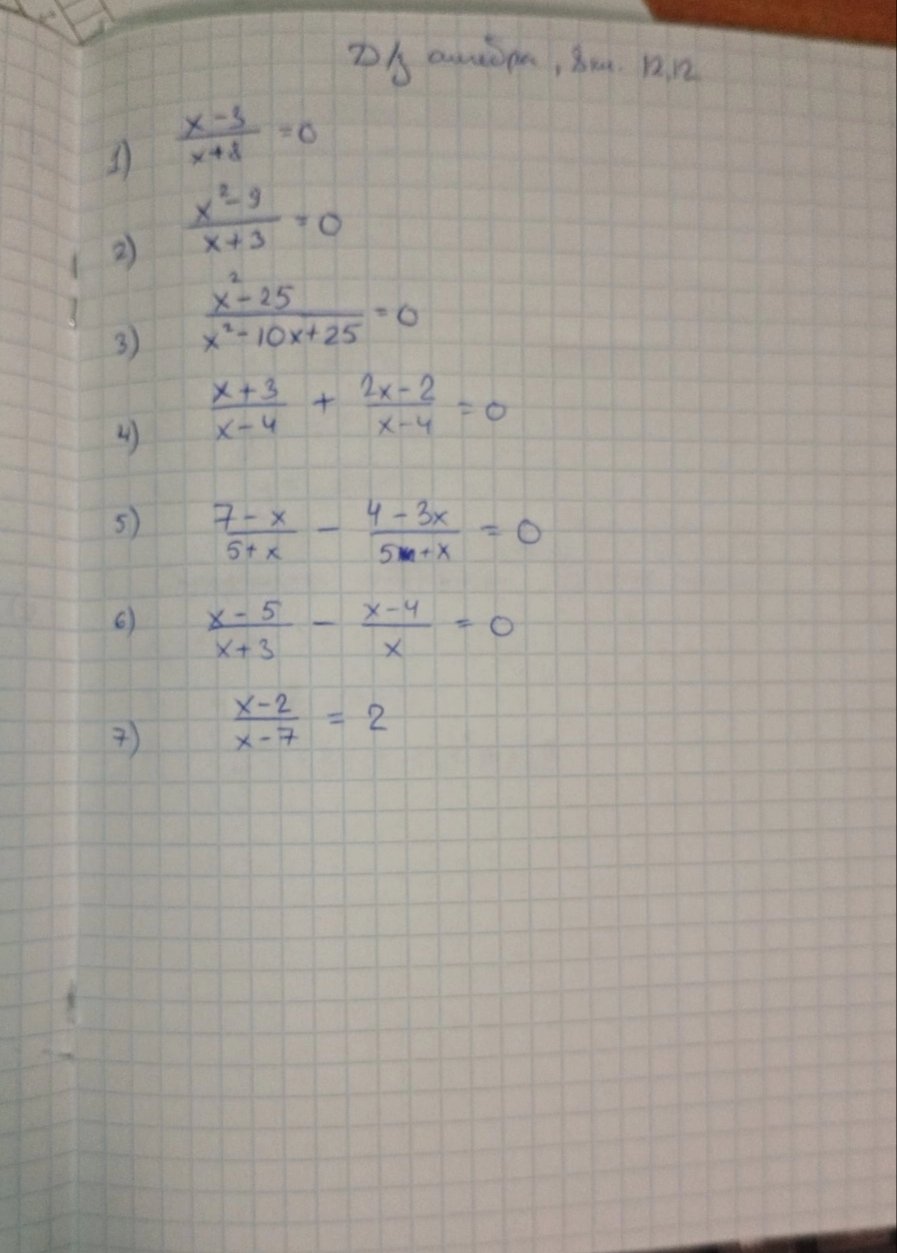 Д/з алгебра, 8 кл. 12.12
1) (x-3)/(x+8) = 0
2) (x²-9)/(x+3) = 0
3) (x²-25)/(x²-10x+25) = 0
4) (x+3)/(x-4) + (2x-2)/(x-4) = 0
5) (7-x)/(5+x) - (4-3x)/(5+x) = 0
6) (x-5)/(x+3) - (x-4)/x = 0
7) (x-2)/(x-7) = 2